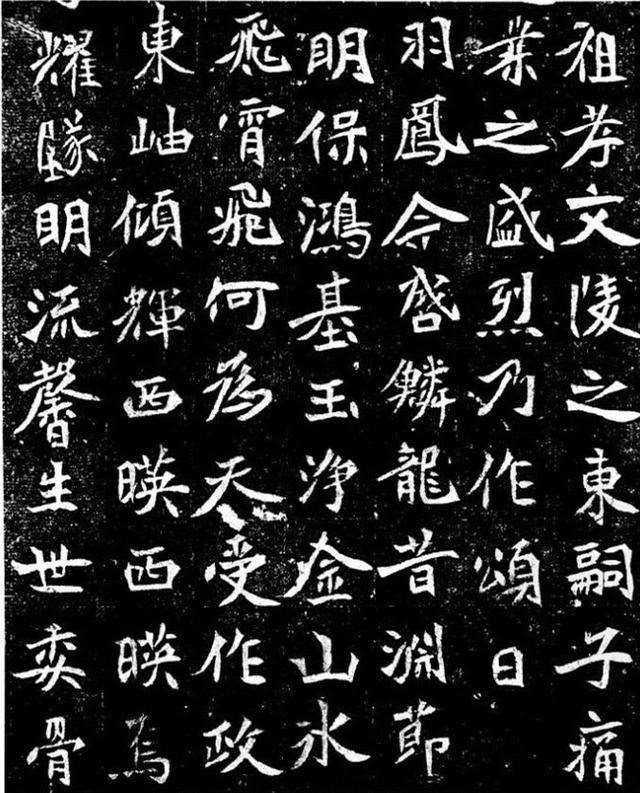 祖孝文陵之東嗣子痛
業之盛烈乃作頌曰
羽鳳令啓鱗龍昔淵節
明保鴻基玉淨金山水
飛霄飛何為天受作政
東岫傾輝西暎西暎焉
耀隧明流馨生世委骨